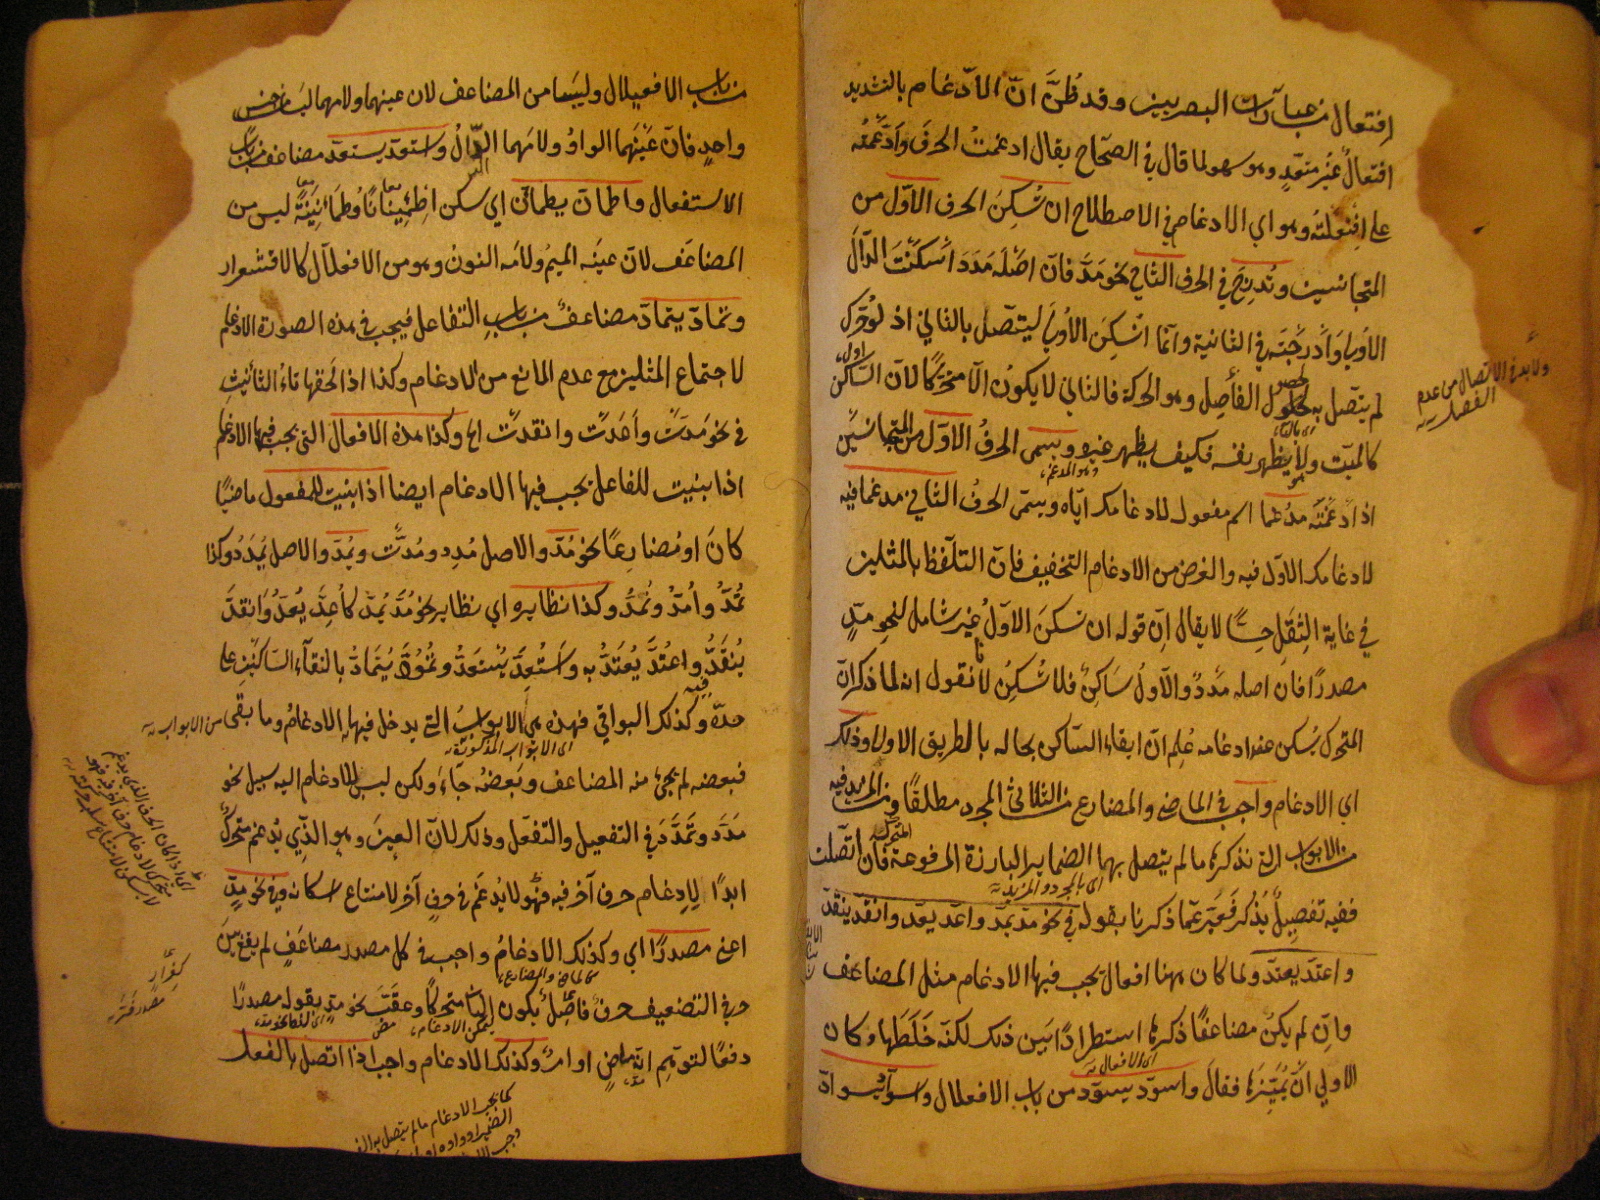 افتعال من عبارات البصريين وقد ظُنّ انّ الادّغام بالتشديد
افتعال غير متعدٍ وهو سهو لما قال في الصحّاح يقال ادغمتُ الحرف وادّغمته
على افتعلته وهو اي الادغام في الاصطلاح ان تُسكِنَ الحرف الاوّل من
المتجانسين وتُدرِجَ في الحرف الثاني نحو مَدَّ فانّ اصله مَدَدَ اسكنت الدّال
الاولى وادرجته في الثانية وانما اسكن الاولى ليتصل بالثاني اذ لو حرّك
لم يتصل به لحصول الفاصل وهو الحركة فالثاني لا يكون الا متحركًا لان الساكن
كالميّت ولا يظهر نفسه فكيف يظهر غيره ويسمى الحرف الاوّل من المتجانسين
اذا ادغمته مدغما اسم مفعول لادغامك اياه ويسمى الحرف الثاني مدغما فيه
لادغامك الاول فيه والغرض من الادغام التخفيف فانّ التلفظ بالمثلين
في غاية الثقل حسًا لا يقال انّ قوله ان تسكن الاوّل غير شامل لنحو مدٍّ
مصدرًا فان اصله مدْدٌ والاول ساكن فلا تُسكِن لانا نقول انه لما ذكر انّ
المتحرك يُسكن عند ادغامه عُلم انّ ابقاء الساكن بحاله بالطريق الاولى وذلك
اي الادغام واجب في الماضي والمضارع من الثلاثي المجرد مطلقًا ومن المزيد فيه
من الابواب التي نذكرها ما لم يتصل بهما الضماير البارزة المرفوعة المتحركة فان اتصلت
ففيه تفصيل يُذكر فعبّر عمّا ذكرنا بقوله في نحو مدّ يمدّ واعدّ يعدّ وانقدّ ينقدّ
واعتدّ يعتدّ ولما كان ههنا افعال يجب فيها الادغام مثل المضاعف
وان لم يكن مضاعفًا ذكرها استطرادًا بين ذلك لكنّه خلطها وكان
الاولي ان يُميّزها فقال واسودّ يسودّ من باب الافعلال واسوادّ يسوادّ
ولا بد في الاتصال من عدم
الفصل
من باب الافعيلال وليسا من المضاعف لان عينهما ولامهما ليسا من جنس
واحدٍ فانّ عينهما الواو ولامهما الدّال واستعدّ يستعدّ مضاعف من باب
الاستفعال واطمأنّ يطمئنّ اي سكن اطمئنانًا وطمأنينةً ليس من
المضاعف لانّ عينه الميم ولامه النون وهو من الافعلّال كالاقشعرار
وتمادّ يتمادّ مضاعف من باب التفاعل فيجب في هذه الصورة الادغام
لاجتماع المثلين مع عدم المانع من الادغام وكذا اذا لحقها تاء التأنيث
في نحو مدّت واعدّت وانقدّت الخ وكذا هذه الافعال التي يجب فيها الادغام
اذا بنيت للفاعل يجب فيها الادغام ايضا اذا بنيت للمفعول ماضيًا
كان او مضارعًا نحو مُدّ والاصل مُدِد ومُدّت ويُمَدّ والاصل يُمدَد وكذا
تُمَدّ واُمَدّ ونُمَدّ وكذا نظايره اي نظاير نحو مُدّ يُمَدّ كاُعِدّ يُعَدّ وانقدّ
يُنقَدّ واعتُدّ يُعتَدّ به واستُعِدّ يُستعدّ وتُمُودّ يُتمادّ بالتقاء الساكنين على
حدّه وكذلك البواقي فهذه هي الابواب التي يدخل فيها الادغام وما بقى من الابواب
اى الابواب المذكورة
فبعضه لم يجئ منه المضاعف وبعضه جاءَ ولكن ليس للادغام اليه سبيل نحو
مدّد وتمدّد في التفعيل والتفعّل وذلك لانّ العين وهو الذي يدغم متحرك
ابدًا لادغام حرف آخر فيه فهو لا يدغم في حرف آخر لامتناع اسكانه وفي نحو مدٍّ
اعنى مصدرًا اي وكذلك الادغام واجب في كل مصدر مضاعف لم يقع بين
حرفي التضعيف حرف فاصل يكون الثاني متحركًا وعقّب نحو مدٍّ بقوله مصدرًا
دفعًا لتوهم انه ماض او امر وكذلك الادغام واجب اذا اتصل بالفعل
كما يجب الادغام ما لم يتصل به